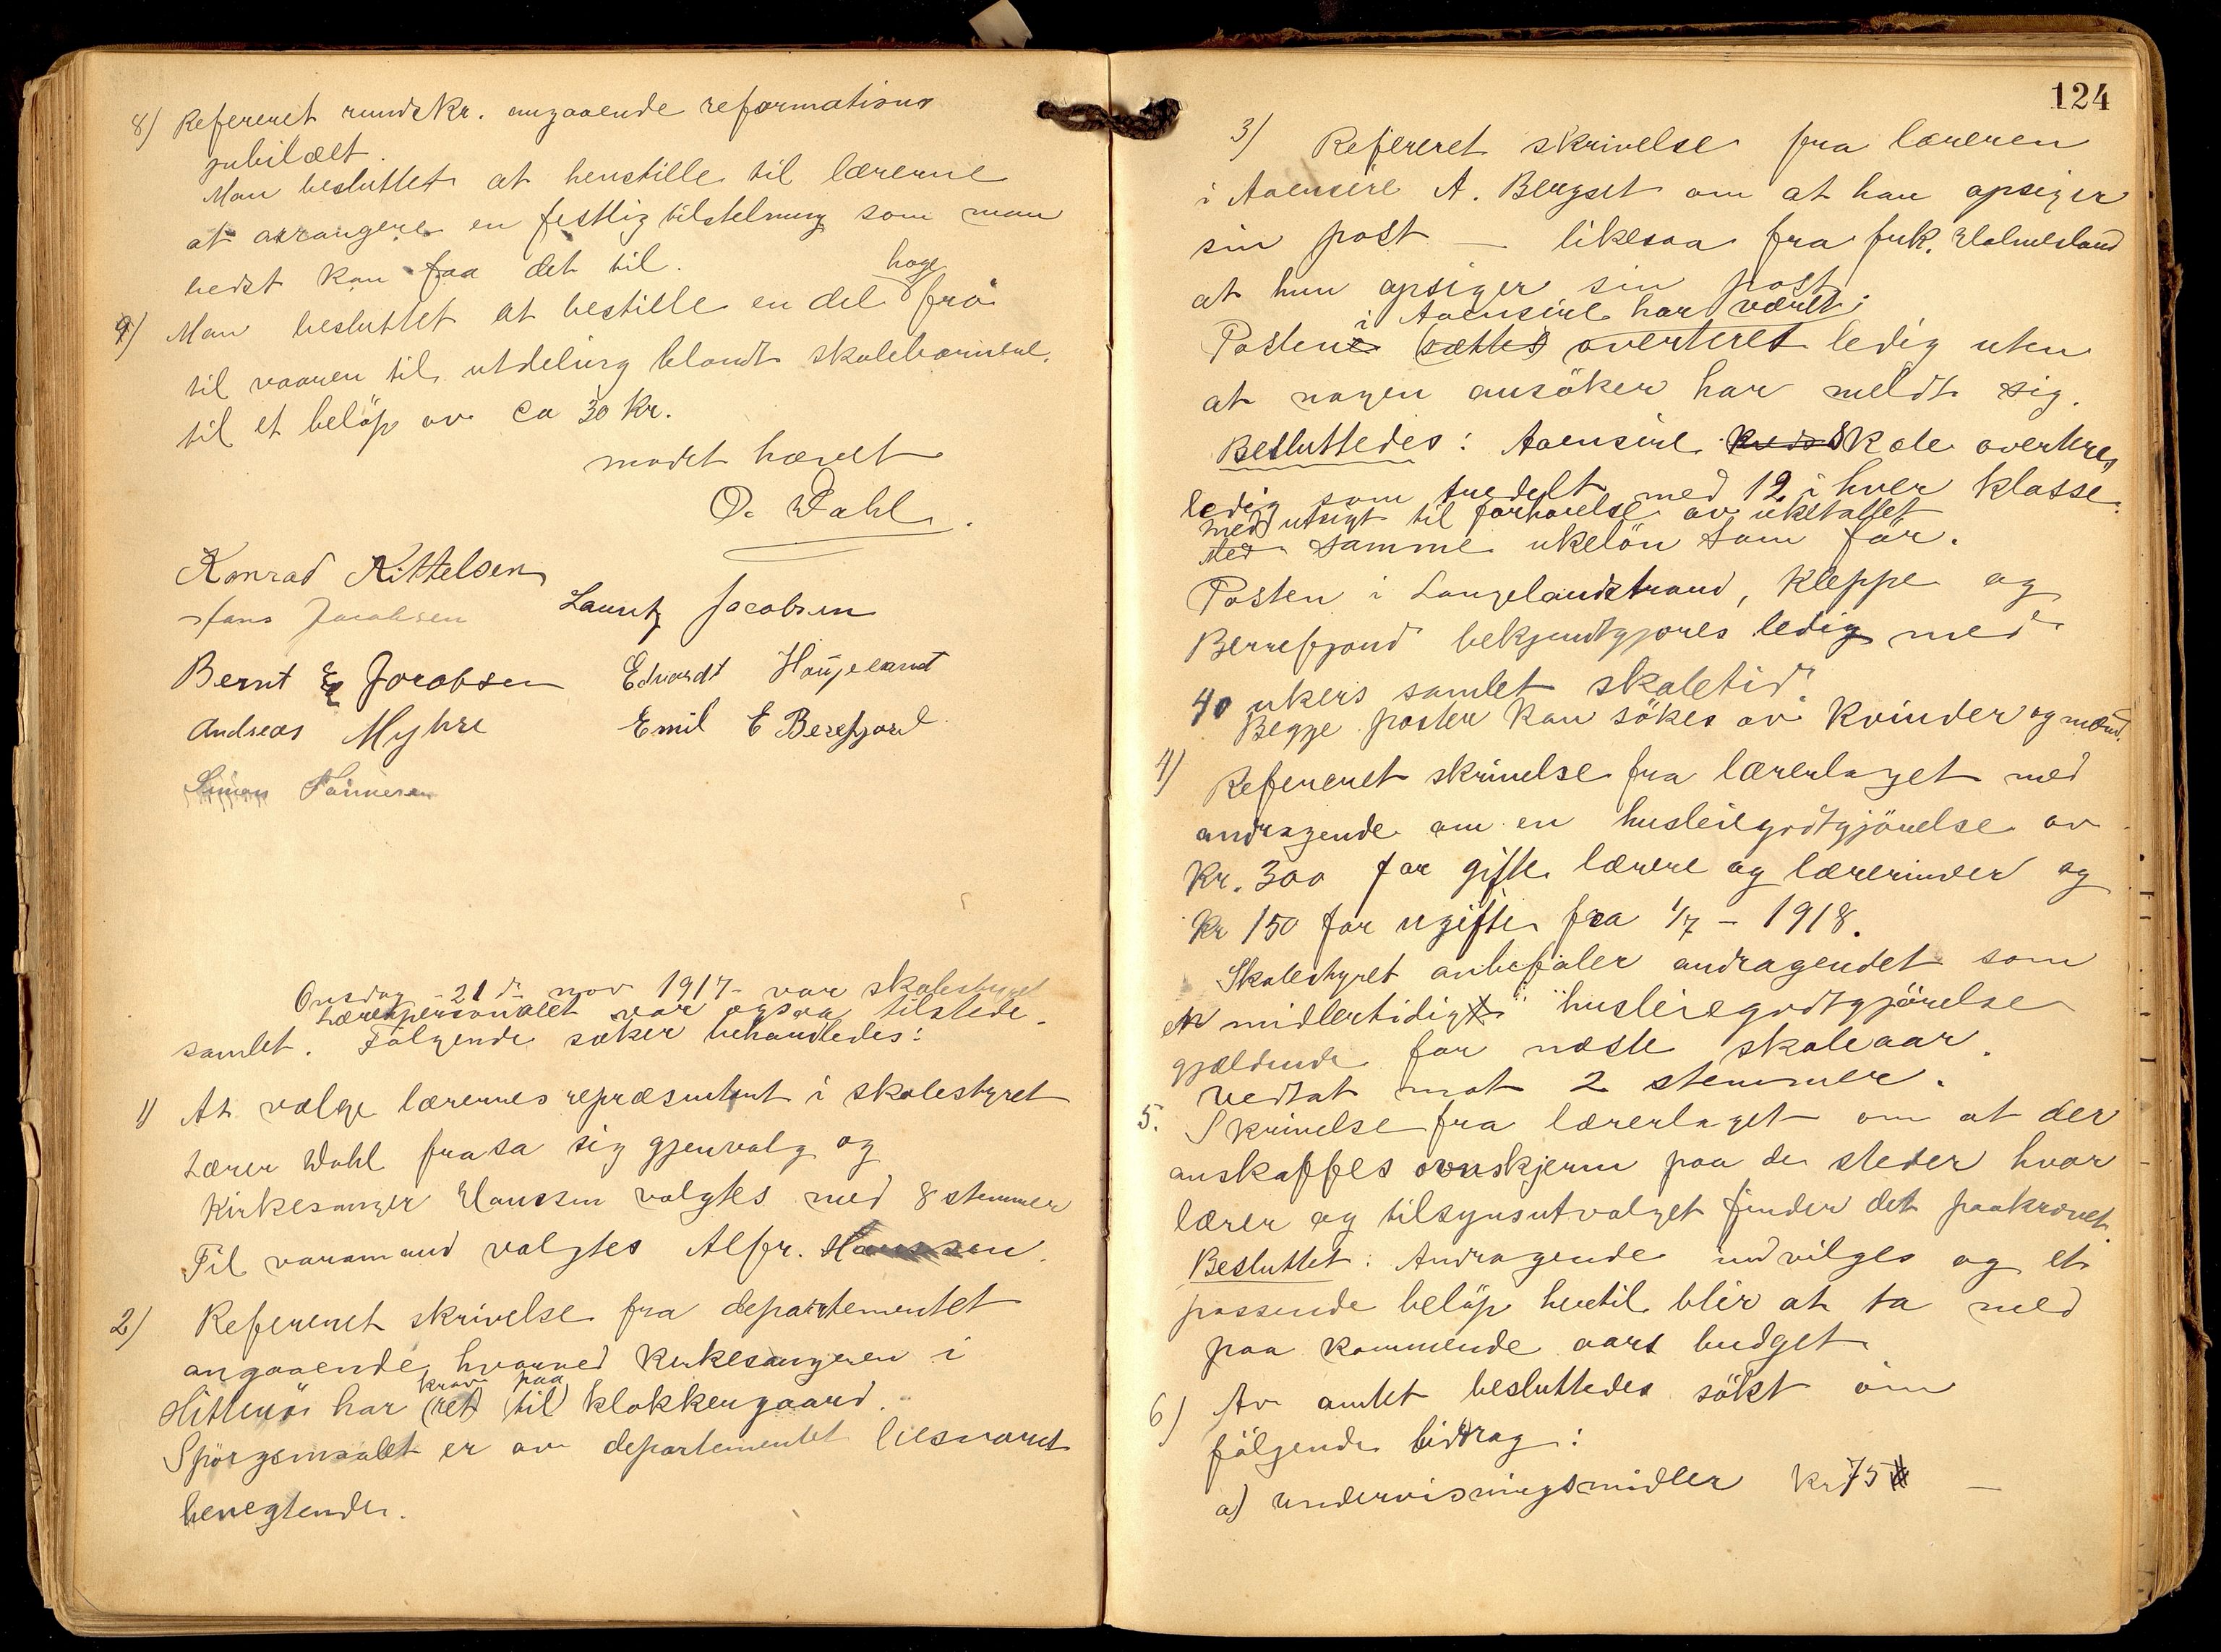 8) Refereret rundskr. angaaende reformations
jubilæet.
Man besluttet at henstille til lærerne
at arrangere en festlig tilstelning som man
bedst kan faa det til.
hage
9) Man besluttet at bestille en del frö
til vaaren til utdeling blandt skolebarnene
til et belöp av ca 30 kr.
mödet hævet
O. Dahl.
Konrad Kittelsen
Hans Jacobsen Lauritz Jacobsen
Bernt E Jacobsen Edvardt Haugeland
Andreas Myhre Emil E Berefjord
Simon Tönnesen
Onsdag 21de nov 1917 var skolestyret
Lærerpersonalet var ogsaa tilstede.
samlet. Følgende saker behandledes:
1) At vælge lærernes repræsentant i skolestyret
Lærer Dahl frasa sig gjenvalg og
Kirkesanger Hanssen valgtes med 8 stemmer
Til varamand valgtes Alfr. Hanssen.
2) Refereret skrivelse fra departementet
angaaende hvorvidt kirkesangeren i
krav paa
Hitterö har (ret) (til) klokkergaard.
Spörgsmaalet er av departementet besvaret
benegtende.
124
3) Refereret skrivelse fra læreren
i Aaensire A. Bergset om at han opsiger
sin post — likesaa fra frk. Holmesland
at hun opsiger sin post.
i Aaensire har været
Postene (sættes) averteret ledig uten
at nogen ansöker har meldt sig.
Besluttedes: Aaensire kreds Skole averteres
ledig som tredelt med 12 i hver klasse.
med utsigt til forhöielse av uketallet
samme ukelön som för.
Posten i Langelandstrand, Kleppe og
Berrefjord bekjendtgjöres ledig med
40 ukers samlet skoletid.
Begge poster kan sökes av kvinder og mænd.
4) Refereret skrivelse fra lærerlaget med
andragende om en husleiegodtgjörelse av
Kr. 300 for gifte lærere og lærerinder og
Kr 150 for ugifte fra 1/7 - 1918.
Skolestyret anbefaler andragendet som
en midlertidig husleiegodtgjörelse
gjældende for næste skoleaar.
Vedtat mot 2 stemmer.
5. Skrivelse fra lærerlaget om at der
anskaffes ovnskjerm paa de steder hvor
lærer og tilsynsutvalget finder det paakrævet.
Besluttet: Andragende indvilges og et
passende belöp hertil blir at ta med
paa kommende aars budget.
6) Av amtet besluttedes sökt om
fölgende bidrag:
a) undervisningsmidler Kr 75 —